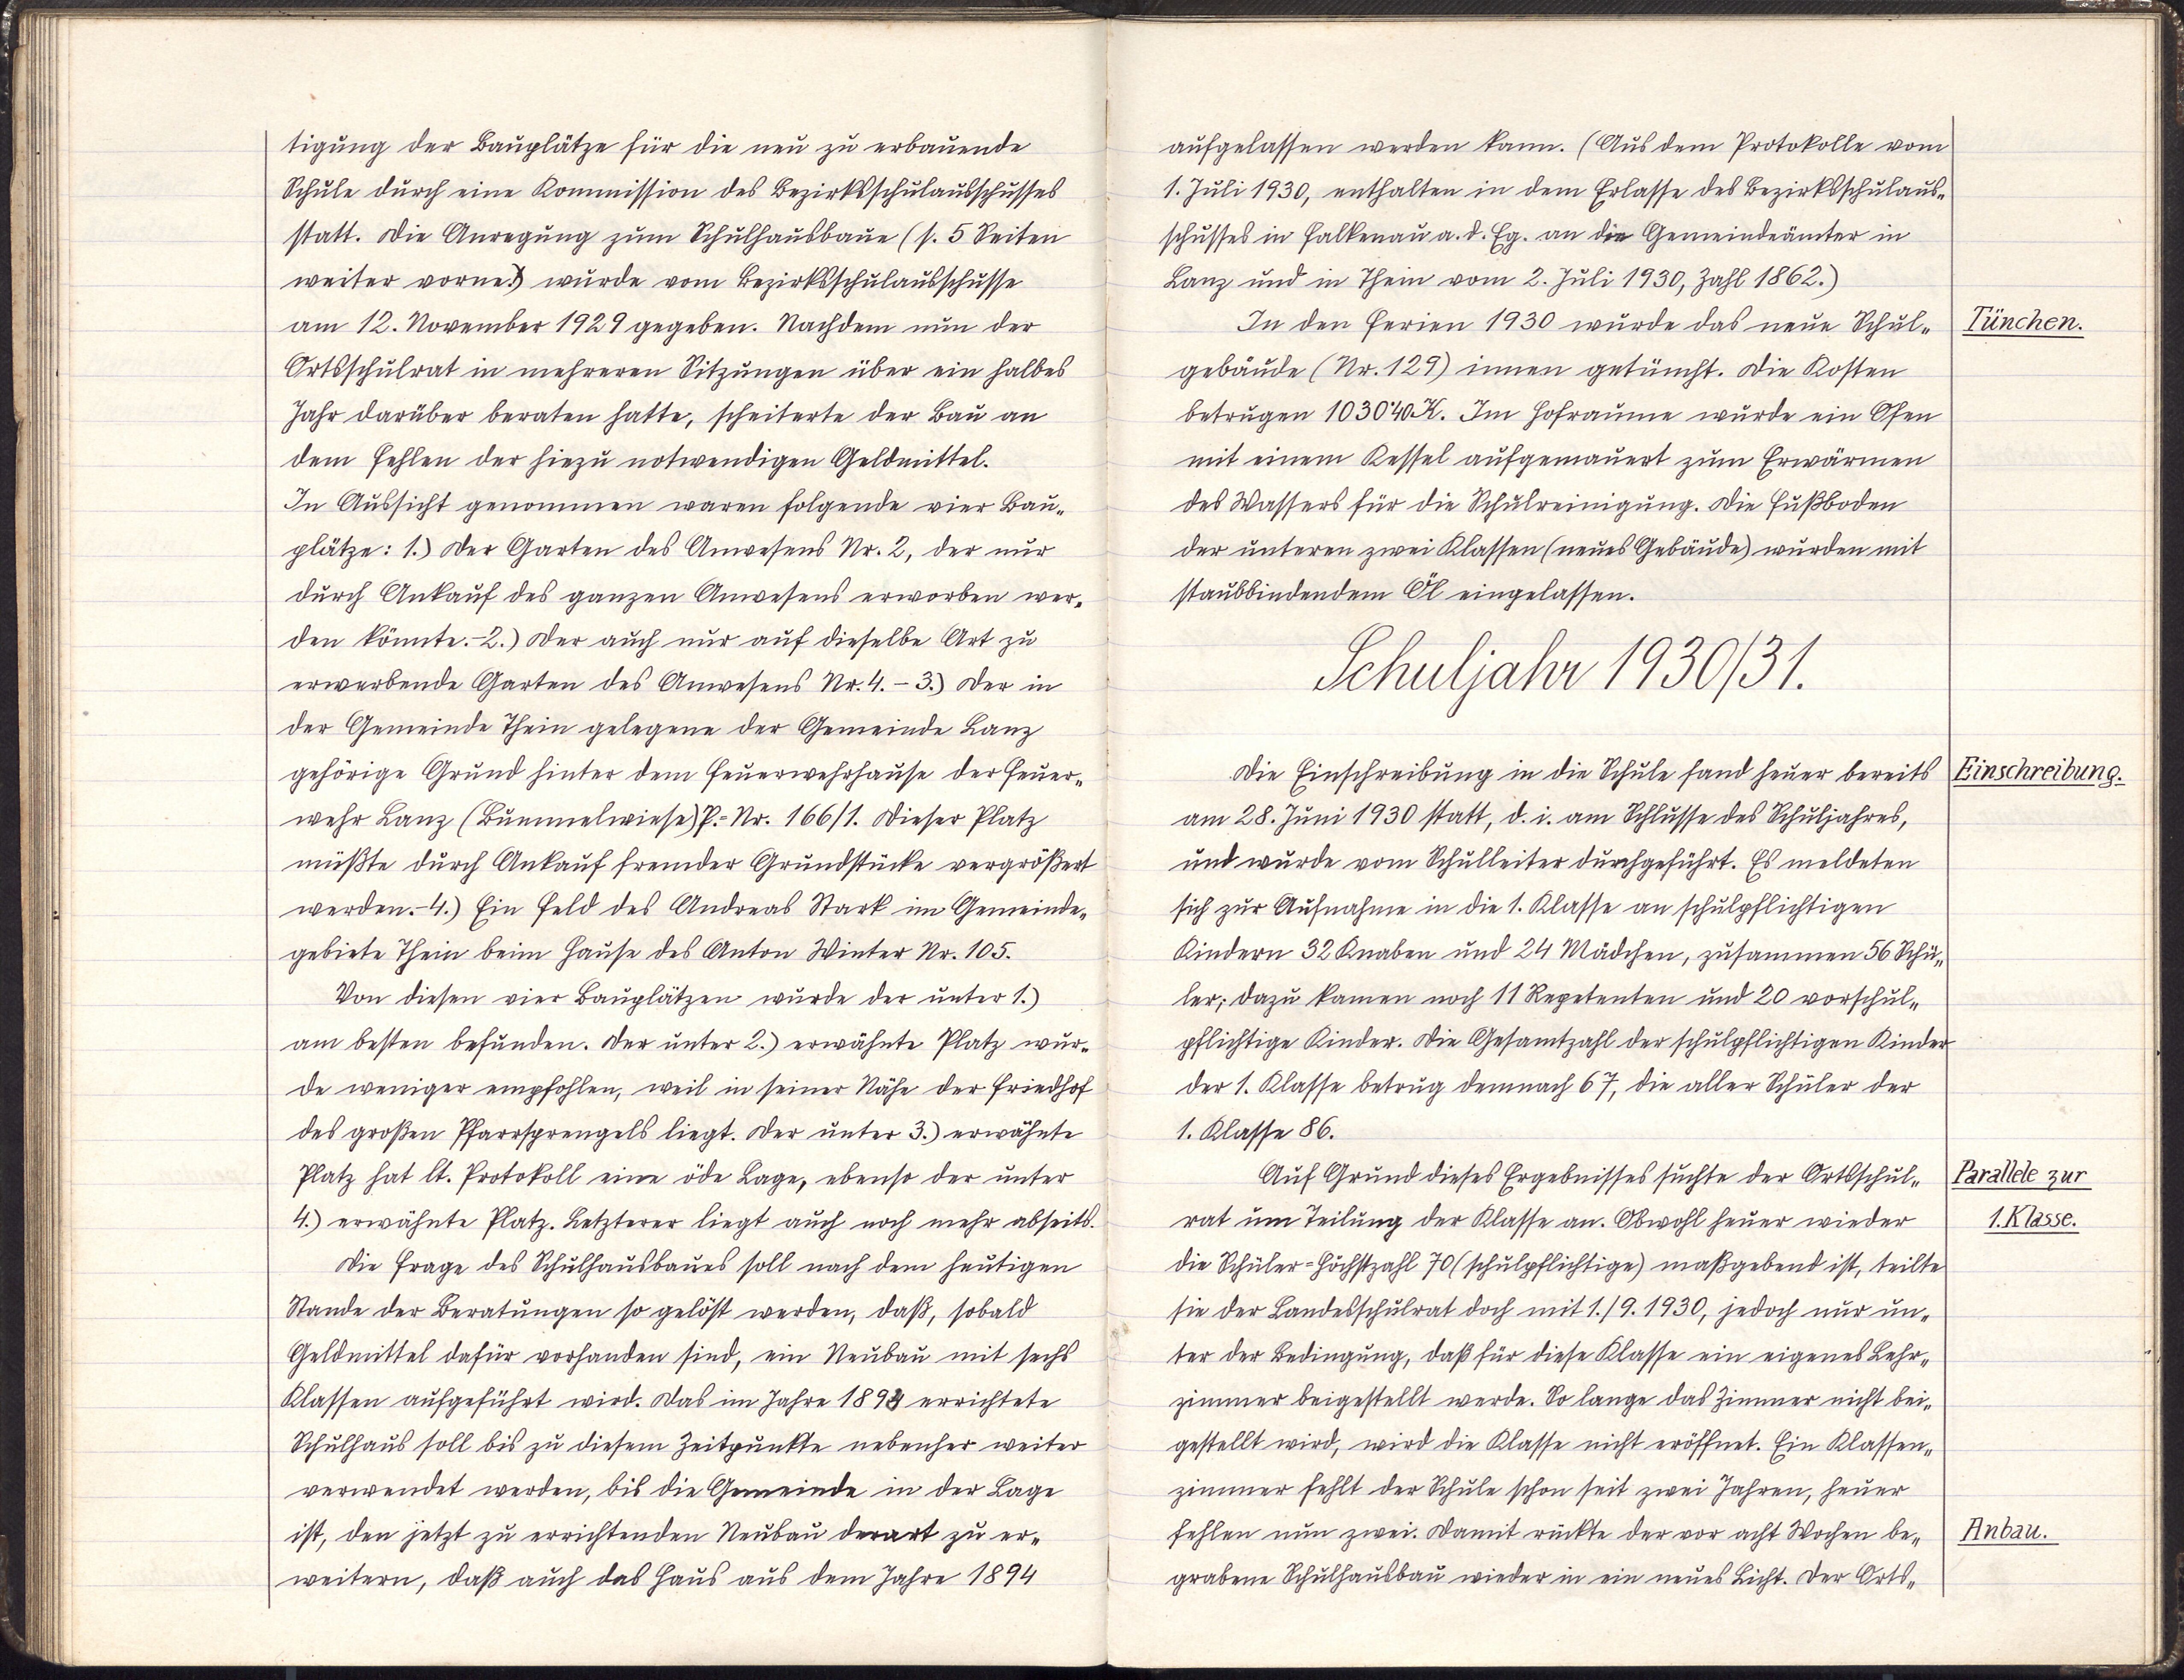 tigung der Bauplätze für die neu zu erbauende
Schule durch eine Kommission des Bezirksschulausschusses
statt. Die Anregung zum Schulhausbaue (s. 5 Seiten
weiter vorne!) wurde vom Bezirksschulausschusse
am 12. November 1929 gegeben. Nachdem nun der
Ortsschulrat in mehreren Sitzungen über ein halbes
Jahr darüber beraten hatte, scheiterte der Bau an
dem Fehlen der hiezu notwendigen Geldmittel.
In Aussicht genommen waren folgende vier Bau-
plätze: 1.) Der Garten des Anwesens Nr. 2, der nur
durch Ankauf des ganzen Anwesens erworben wer-
den könnte.-2.) Der auch nur auf dieselbe Art zu
erwerbende Garten des Anwesens Nr. 4. - 3.) Der in
der Gemeinde Thein gelegene der Gemeinde Lanz
gehörige Grund hinter dem Feuerwehrhause der Feuer-
wehr Lanz (Bummelwiese) P.=Nr. 166/1. Dieser Platz
müßte durch Ankauf fremder Grundstücke vergrößert
werden.-4.) Ein Feld des Andreas Stark im Gemeinde-
gebiete Thein beim Hause des Anton Winter Nr. 105.
Von diesen vier Bauplätzen wurde der unter 1.)
am besten befunden. Der unter 2.) erwähnte Platz wur-
de weniger empfohlen, weil in seiner Nähe der Friedhof
des großen Pfarrsprengels liegt. Der unter 3.) erwähnte
Platz hat lt. Protokoll eine öde Lage, ebenso der unter
4.) erwähnte Platz. Letzterer liegt auch noch mehr abseits.
Die Frage des Schulhausbaues soll nach dem heutigen
Stande der Beratungen so gelöst werden, daß, sobald
Geldmittel dafür vorhanden sind, ein Neubau mit sechs
Klassen aufgeführt wird. Das im Jahre 1894 errichtete
Schulhaus soll bis zu diesem Zeitpunkte nebenher weiter
verwendet werden, bis die Gemeinde in der Lage
ist, den jetzt zu errichtenden Neubau derart zu er-
weitern, daß auch das Haus aus dem Jahre 1894
aufgelassen werden kann. (Aus dem Protokolle vom
1. Juli 1930, enthalten in dem Erlasse des Bezirksschulaus-
schusses in Falkenau a. d. Eg. an die Gemeindeämter in
Lanz und in Thein vom 2. Juli 1930, Zahl 1862.)
In den Ferien 1930 wurde das neue Schul-
Tünchen.
gebäude (Nr. 129) innen getüncht. Die Kosten
betrugen 1030'40 K. Im Hofraume wurde ein Ofen
mit einem Kessel aufgemauert zum Erwärmen
des Wassers für die Schulreinigung. Die Fußboden
der unteren zwei Klassen (neues Gebäude) wurden mit
staubbindendem Öl eingelassen.
Schuljahr 1930/31.
Die Einschreibung in die Schule fand heuer bereits
Einschreibung.
am 28. Juni 1930 statt, d. i. am Schlusse des Schuljahres,
und wurde vom Schulleiter durchgeführt. Es meldeten
sich zur Aufnahme in die 1. Klasse an schulpflichtigen
Kindern 32 Knaben und 24 Mädchen, zusammen 56 Schü-
ler; dazu kamen noch 11 Repetenten und 20 vorschul-
pflichtige Kinder. Die Gesamtzahl der schulpflichtigen Kinder
der 1. Klasse betrug demnach 67, die aller Schüler der
1. Klasse 86.
Auf Grund dieses Ergebnisses suchte der Ortsschul-
Parallele zur
rat um Teilung der Klasse an. Obwohl heuer wieder
1. Klasse.
die Schüler=Höchstzahl 70 (schulpflichtige) maßgebend ist, teilte
sie der Landesschulrat doch mit 1./9. 1930, jedoch nur un-
ter der Bedingung, daß für diese Klasse ein eigenes Lehr-
zimmer beigestellt werde. So lange das Zimmer nicht bei-
gestellt wird, wird die Klasse nicht eröffnet. Ein Klassen-
zimmer fehlt der Schule schon seit zwei Jahren, heuer
fehlen nun zwei. Damit rückte der vor acht Wochen be-
Anbau.
grabene Schulhausbau wieder in ein neues Licht. Der Orts-